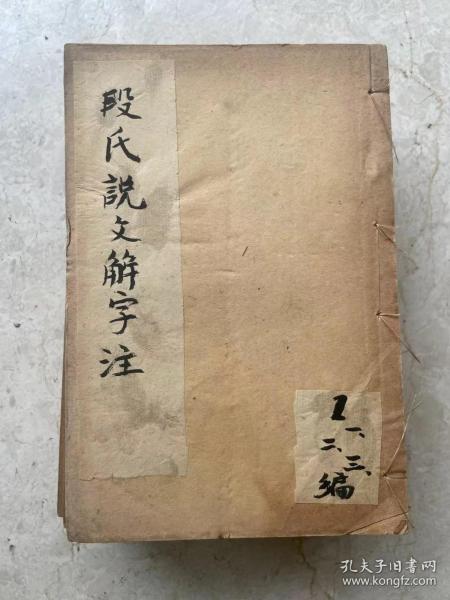 段氏説文解字注
1
一、二、三、
编
孔夫子旧书网
www.kongfz.com